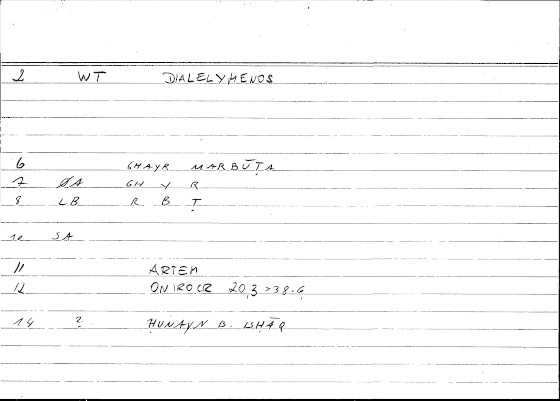 2 WT DIALELYMENOS
6 GHAYR MARBŪṬA
7 ØA GH Y R
8 LB R B Ṭ
10 SA
11 ARTEM
12 ONIROCR 20,3 > 38.6
14 ? ḤUNAYN B. ISḤĀQ